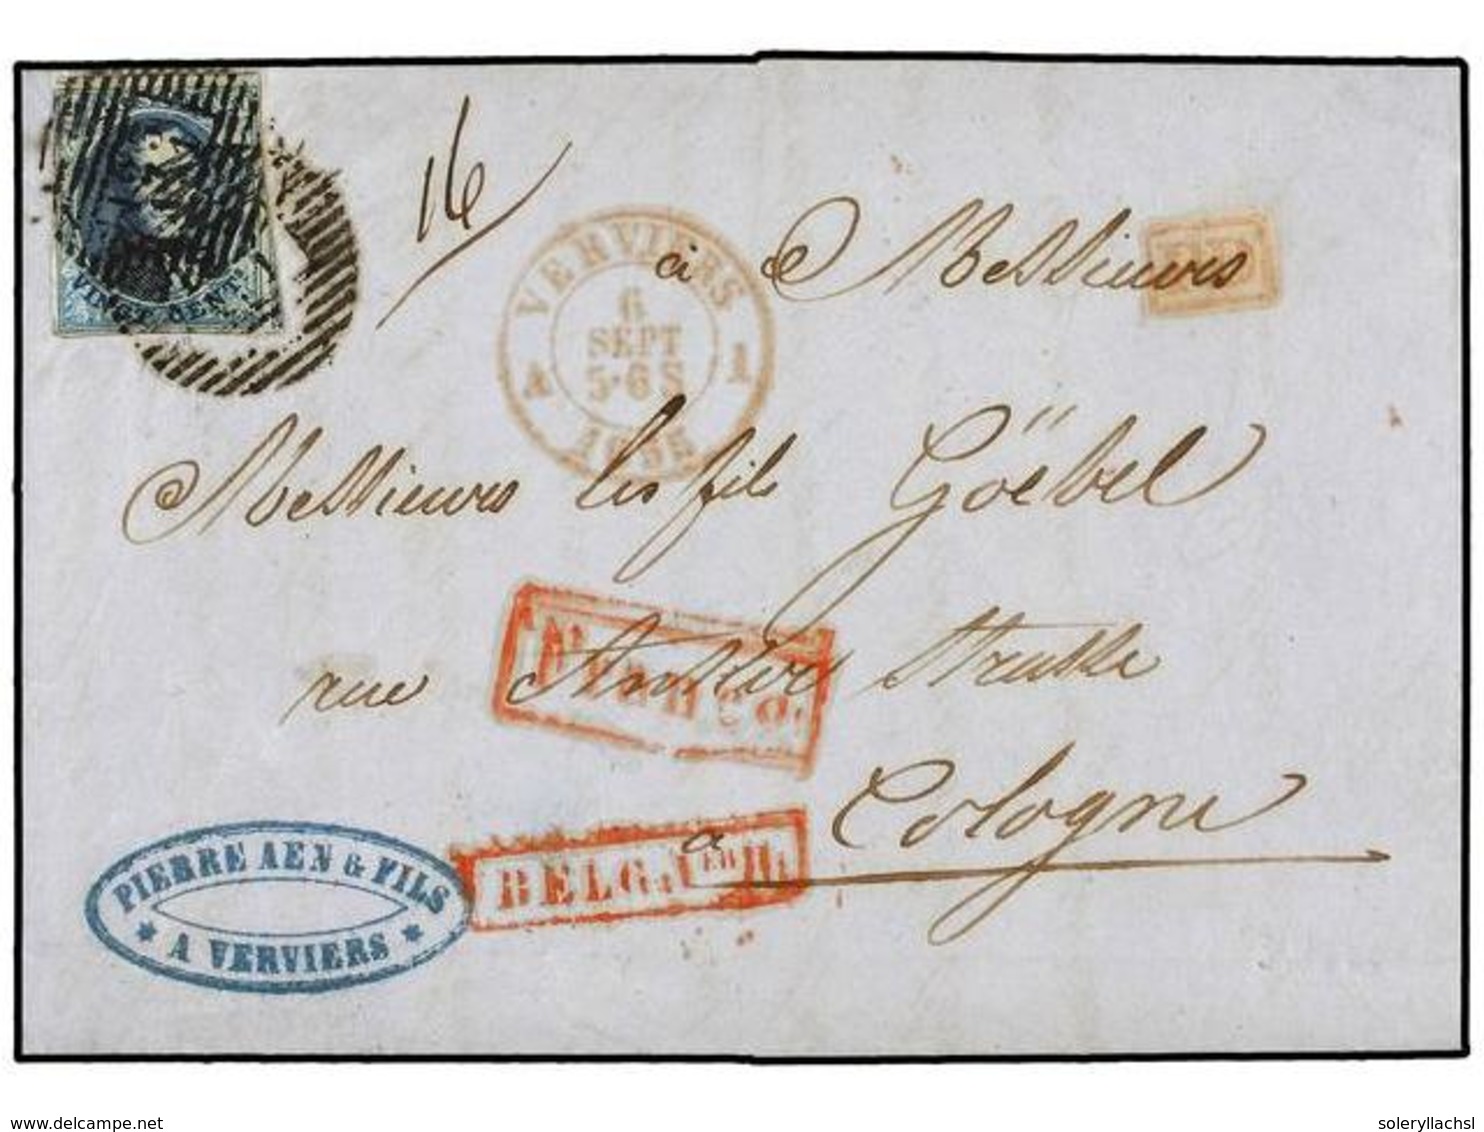 16
VINGT CENTS
VERVIERS
6
SEPT
5-6 S
A 1
à Messieurs
Messieurs les fils Göebel
rue Strasse
Franco.
à Cologne
BELG. 1ER R.
PIERRE AEN & FILS
* A VERVIERS *
www.delcampe.net
soleryllachsl